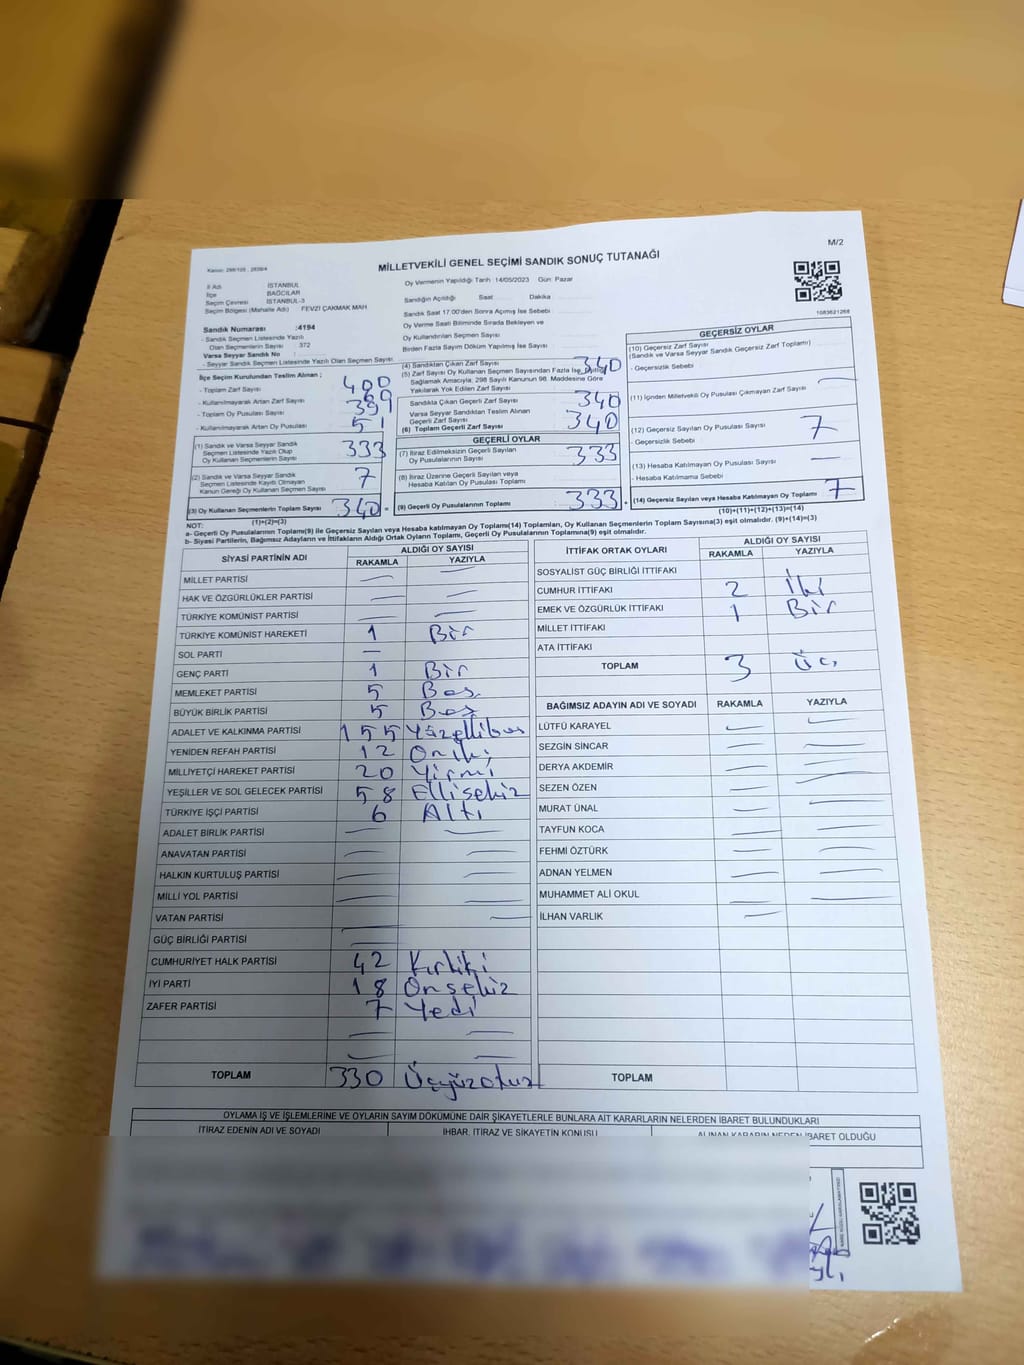 M/2
MİLLETVEKİLİ GENEL SEÇİMİ SANDIK SONUÇ TUTANAĞI
İl Adı : İSTANBUL
İlçe : BAĞCILAR
Seçim Çevresi : İSTANBUL-3
Seçim Bölgesi (Mahalle Adı) : FEVZİ ÇAKMAK MAH
Sandık Numarası :4194
- Sandık Seçmen Listesinde Yazılı
Olan Seçmenlerin Sayısı : 372
Varsa Seyyar Sandık No :
- Seyyar Sandık Seçmen Listesinde Yazılı Olan Seçmen Sayısı
Oy Vermenin Yapıldığı Tarih 14/05/2023 Gün: Pazar
Sandığın Açıldığı Saat Dakika
Sandık Saat 17.00'den Sonra Açılmış İse Sebebi
Oy Verme Saati Bitiminde Sırada Bekleyen ve
Oy Kullandırılan Seçmen Sayısı
Birden Fazla Sayım Döküm Yapılmış İse Sayısı
1083621268
İlçe Seçim Kurulundan Teslim Alınan ;
- Toplam Zarf Sayısı 400
- Kullanılmayarak Artan Zarf Sayısı
- Toplam Oy Pusulası Sayısı
- Kullanılmayarak Artan Oy Pusulası 51
(1) Sandık ve Varsa Seyyar Sandık
Seçmen Listesinde Yazılı Olup
Oy Kullanan Seçmenlerin Sayısı 333
(2) Sandık ve Varsa Seyyar Sandık
Seçmen Listesinde Kaydı Olmayan
Kanun Gereği Oy Kullanan Seçmen Sayısı 7
(3) Oy Kullanan Seçmenlerin Toplam Sayısı 340
(1)+(2)=(3)
(4) Sandıktan Çıkan Zarf Sayısı 340
(5) Zarf Sayısı Oy Kullanan Seçmen Sayısından Fazla İse, Eşitliği
Sağlamak Amacıyla; 298 Sayılı Kanunun 98. Maddesine Göre
Yakılarak Yok Edilen Zarf Sayısı
Sandıkta Çıkan Geçerli Zarf Sayısı 340
Varsa Seyyar Sandıktan Teslim Alınan
Geçerli Zarf Sayısı
(6) Toplam Geçerli Zarf Sayısı 340
GEÇERLİ OYLAR
(7) İtiraz Edilmeksizin Geçerli Sayılan
Oy Pusulalarının Sayısı 333
(8) İtiraz Üzerine Geçerli Sayılan veya
Hesaba Katılan Oy Pusulası Toplamı
(9) Geçerli Oy Pusulalarının Toplamı 333
GEÇERSİZ OYLAR
(10) Geçersiz Zarf Sayısı
(Sandık ve Varsa Seyyar Sandık Geçersiz Zarf Toplamı)
- Geçersizlik Sebebi
(11) İçinden Milletvekili Oy Pusulası Çıkmayan Zarf Sayısı
(12) Geçersiz Sayılan Oy Pusulası Sayısı 7
- Geçersizlik Sebebi
(13) Hesaba Katılmayan Oy Pusulası Sayısı
- Hesaba Katılmama Sebebi
(14) Geçersiz Sayılan veya Hesaba Katılmayan Oy Toplamı 7
(10)+(11)+(12)+(13)=(14)
NOT:
a- Geçerli Oy Pusulalarının Toplamı(9) ile Geçersiz Sayılan veya Hesaba katılmayan Oy Toplamı(14) Toplamları, Oy Kullanan Seçmenlerin Toplam Sayısına(3) eşit olmalıdır. (9)+(14)=(3)
b- Siyasi Partilerin, Bağımsız Adayların ve İttifakların Aldığı Ortak Oyların Toplamı, Geçerli Oy Pusulalarının Toplamına(9) eşit olmalıdır.
SİYASİ PARTİNİN ADI ALDIĞI OY SAYISI
RAKAMLA YAZIYLA
MİLLET PARTİSİ
HAK VE ÖZGÜRLÜKLER PARTİSİ
TÜRKİYE KOMÜNİST PARTİSİ
TÜRKİYE KOMÜNİST HAREKETİ 1 Bir
SOL PARTİ
GENÇ PARTİ 1 Bir
MEMLEKET PARTİSİ 5 Beş
BÜYÜK BİRLİK PARTİSİ 5 Beş
ADALET VE KALKINMA PARTİSİ 155 Yüzellibeş
YENİDEN REFAH PARTİSİ 12 Oniki
MİLLİYETÇİ HAREKET PARTİSİ 20 Yirmi
YEŞİLLER VE SOL GELECEK PARTİSİ 58 Ellisekiz
TÜRKİYE İŞÇİ PARTİSİ 6 Altı
ADALET BİRLİK PARTİSİ
ANAVATAN PARTİSİ
HALKIN KURTULUŞ PARTİSİ
MİLLİ YOL PARTİSİ
VATAN PARTİSİ
GÜÇ BİRLİĞİ PARTİSİ
CUMHURİYET HALK PARTİSİ 42 Kırkiki
İYİ PARTİ 18 Onsekiz
ZAFER PARTİSİ 7 Yedi
TOPLAM 330 Üçyüzotuz
İTTİFAK ORTAK OYLARI ALDIĞI OY SAYISI
RAKAMLA YAZIYLA
SOSYALİST GÜÇ BİRLİĞİ İTTİFAKI
CUMHUR İTTİFAKI 2 İki
EMEK VE ÖZGÜRLÜK İTTİFAKI 1 Bir
MİLLET İTTİFAKI
ATA İTTİFAKI
TOPLAM 3 Üç
BAĞIMSIZ ADAYIN ADI VE SOYADI RAKAMLA YAZIYLA
LÜTFÜ KARAYEL
SEZGİN SİNCAR
DERYA AKDEMİR
SEZEN ÖZEN
MURAT ÜNAL
TAYFUN KOCA
FEHMİ ÖZTÜRK
ADNAN YELMEN
MUHAMMET ALİ OKUL
İLHAN VARLIK
TOPLAM
OYLAMA İŞ VE İŞLEMLERİNE VE OYLARIN SAYIM DÖKÜMÜNE DAİR ŞİKAYETLERLE BUNLARA AİT KARARLARIN NELERDEN İBARET BULUNDUKLARI
İTİRAZ EDENİN ADI VE SOYADI İHBAR, İTİRAZ VE ŞİKAYETİN KONUSU ALINAN KARARIN NEDEN İBARET OLDUĞU